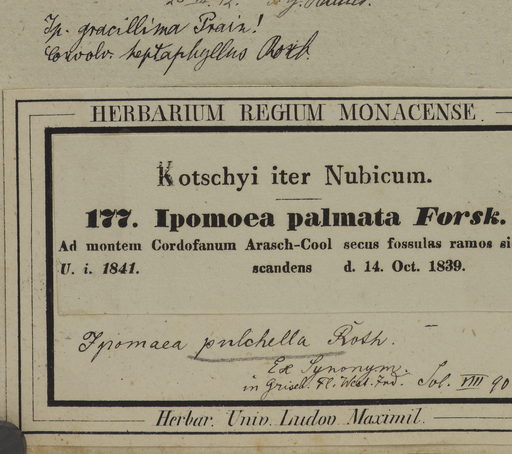 Ip. gracillima Prain!
Convolv. heptaphyllus Roxb.
HERBARIUM REGIUM MONACENSE.
Kotschyi iter Nubicum.
177. Ipomoea palmata Forsk.
Ad montem Cordofanum Arasch-Cool secus fossulas ramos si
U. i. 1841. scandens d. 14. Oct. 1839.
Ipomaea pulchella Roth.
Ex Synonym.
in Griseb. Fl. West. Ind. Sol. VIII 90
Herbar. Univ. Ludov. Maximil.